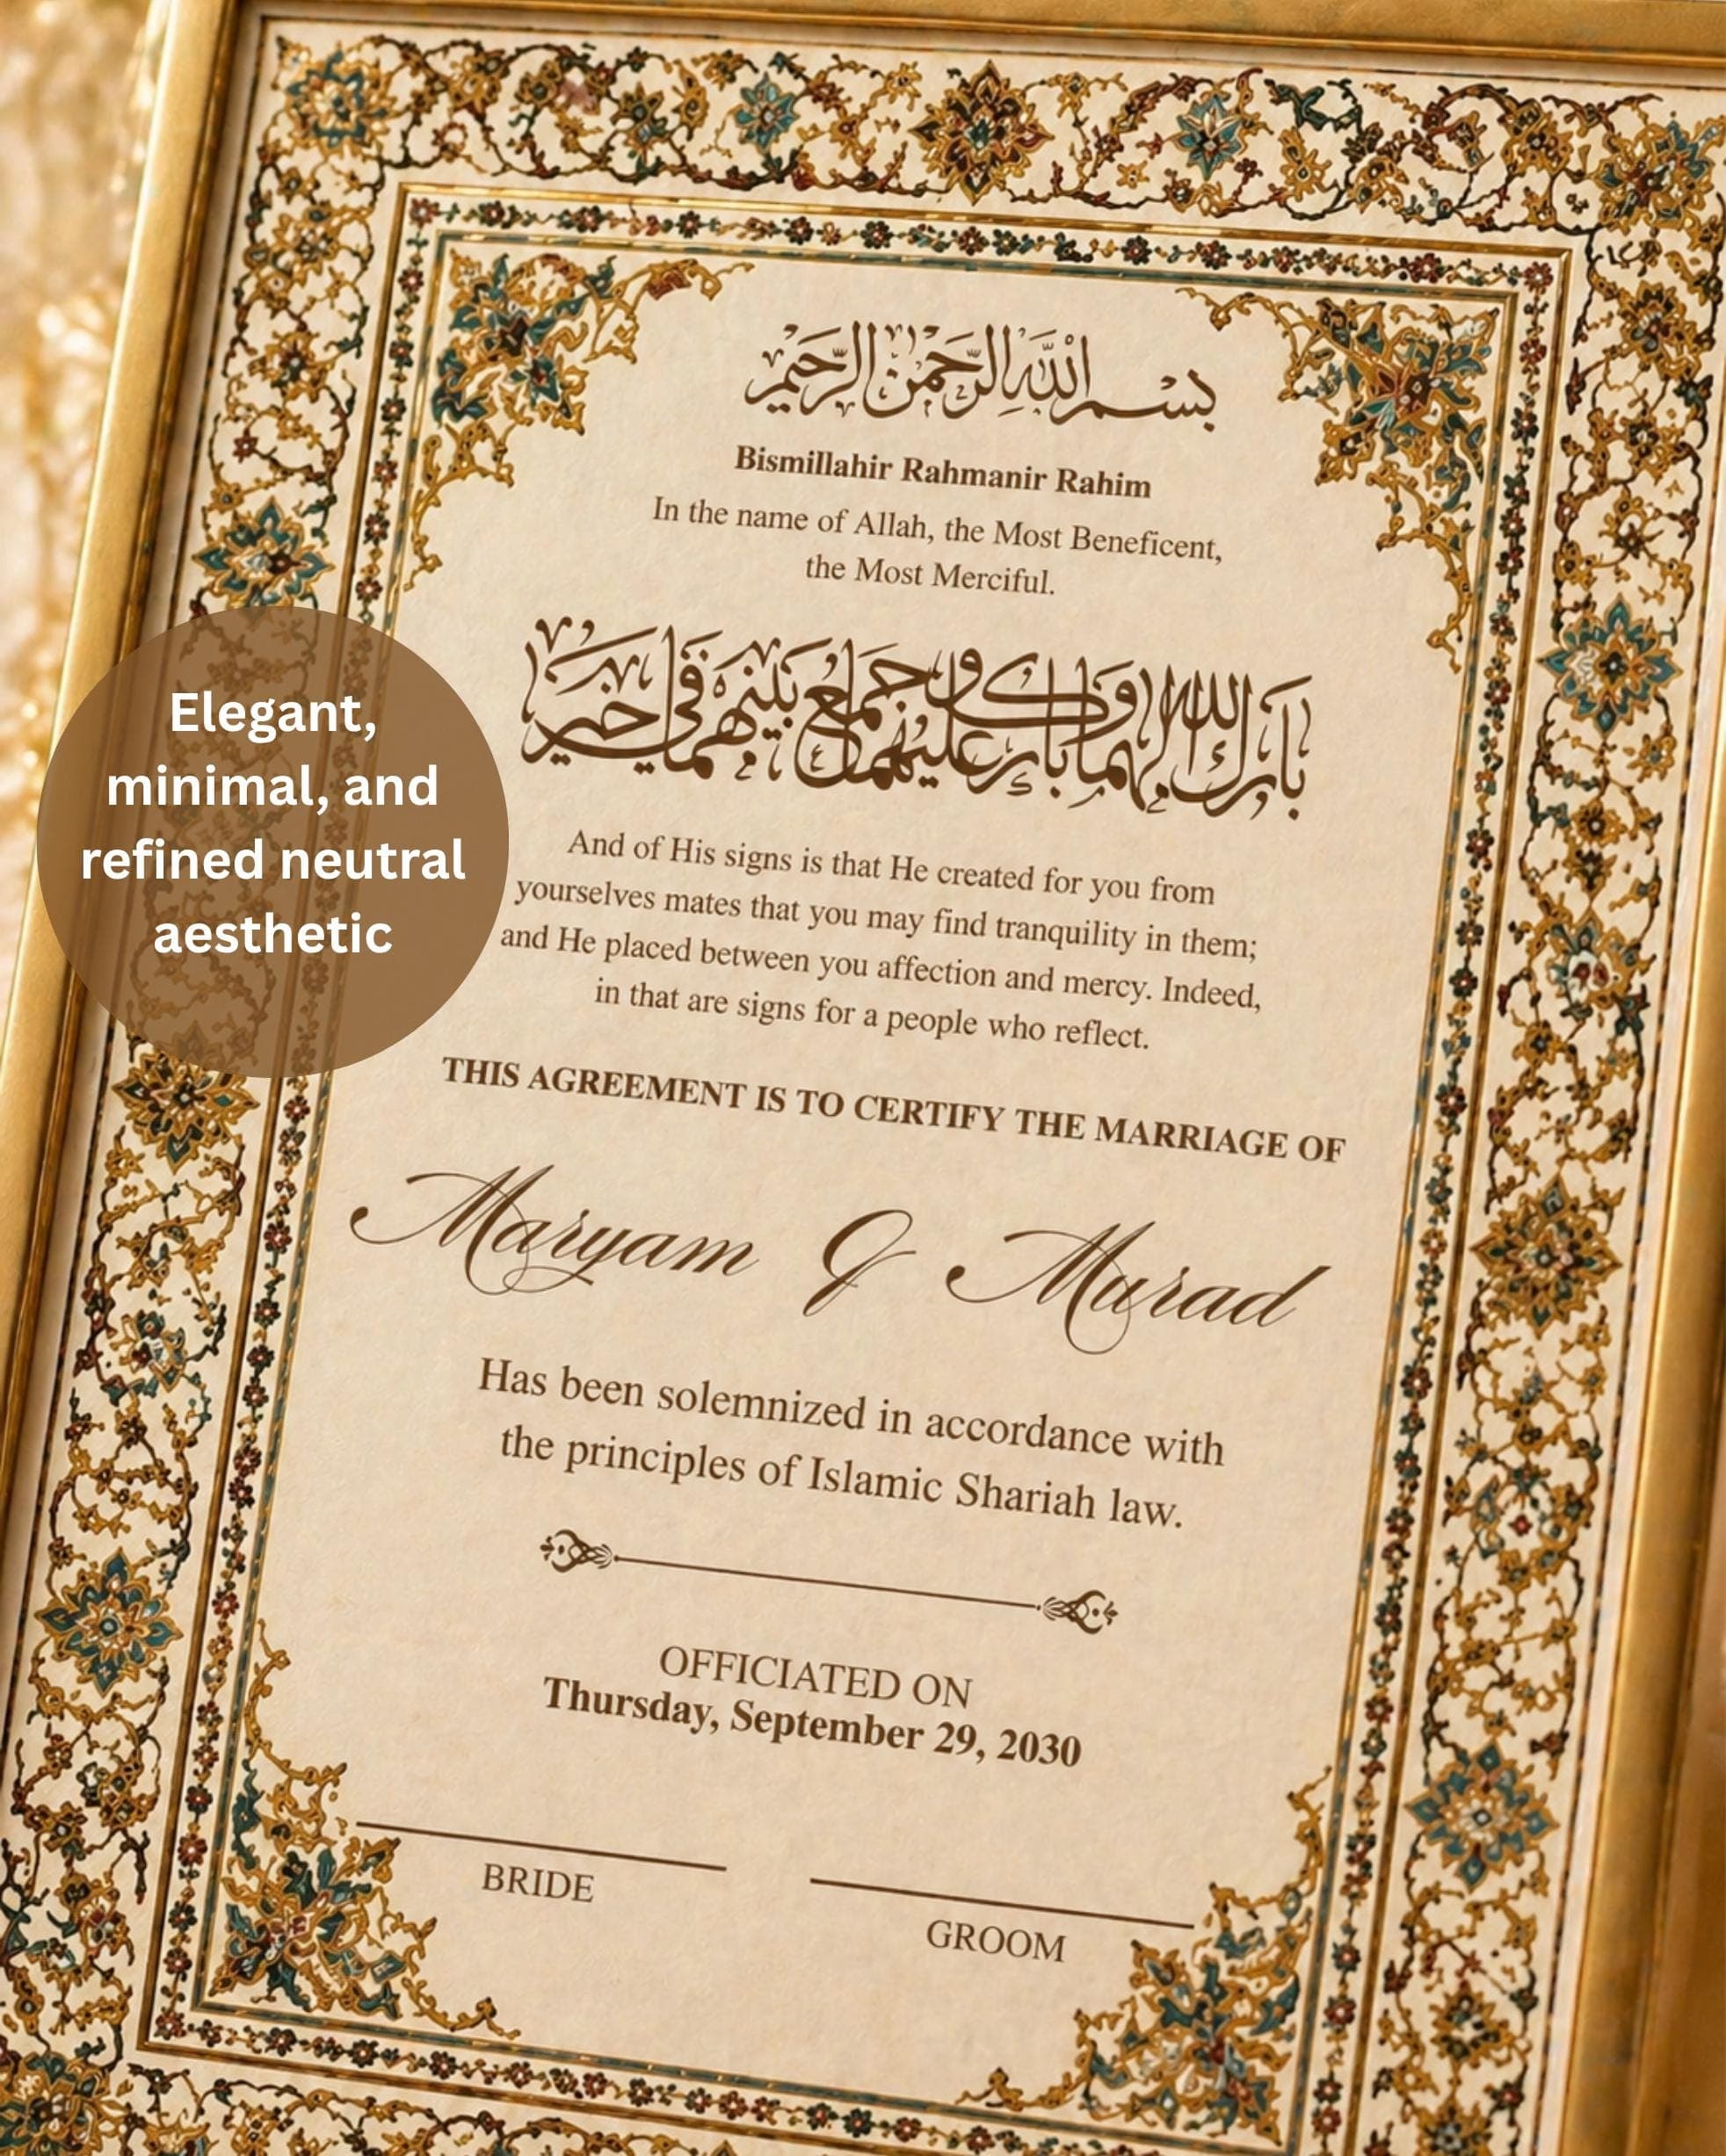 بسم الله الرحمن الرحيم
Bismillahir Rahmanir Rahim
In the name of Allah, the Most Beneficent,
the Most Merciful.
بارك الله لهما وبارك عليهما وجمع بينهما في خير
And of His signs is that He created for you from
yourselves mates that you may find tranquility in them;
and He placed between you affection and mercy. Indeed,
in that are signs for a people who reflect.
THIS AGREEMENT IS TO CERTIFY THE MARRIAGE OF
Maryam & Murad
Has been solemnized in accordance with
the principles of Islamic Shariah law.
OFFICIATED ON
Thursday, September 29, 2030
BRIDE
GROOM
Elegant,
minimal, and
refined neutral
aesthetic